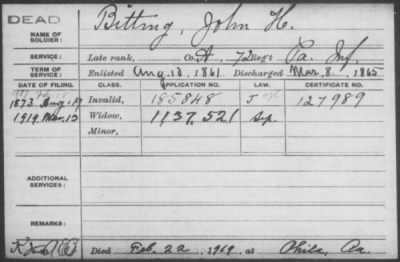 DEAD
NAME OF SOLDIER: Bitting, John H.
SERVICE: Late rank, Co. A, 72 Reg't Pa. Inf.
TERM OF SERVICE: Enlisted Aug. 10, 1861 Discharged Mar. 8, 1865
DATE OF FILING. CLASS. APPLICATION NO. LAW. CERTIFICATE NO.
1873 Aug. 19 Invalid, 185848 J 127989
1919 Mar. 13 Widow, 1137.521 Sep.
Minor,
ADDITIONAL SERVICES:
REMARKS:
Died Feb. 22, 1919, at Phila, Pa.